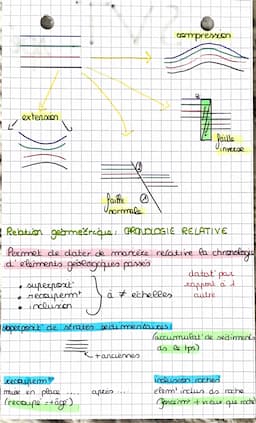 compression
extension
faille
inverse
faille
normale
Relation géométrique: CHRONOLOGIE RELATIVE
Permet de dater de manière relative la chronologie
d'éléments géologiques passés
• superposit°
• recoupemt
• inclusion
à ≠ échelles
datat° par
rapport à 1
autre
superposit° de strates sédimentaires
(accumulat° de sédiments
ds le tps)
+ anciennes
recoupemt
mise en place ... après ...
(recoupe → âge)
inclusion roches
élemt inclus ds roche